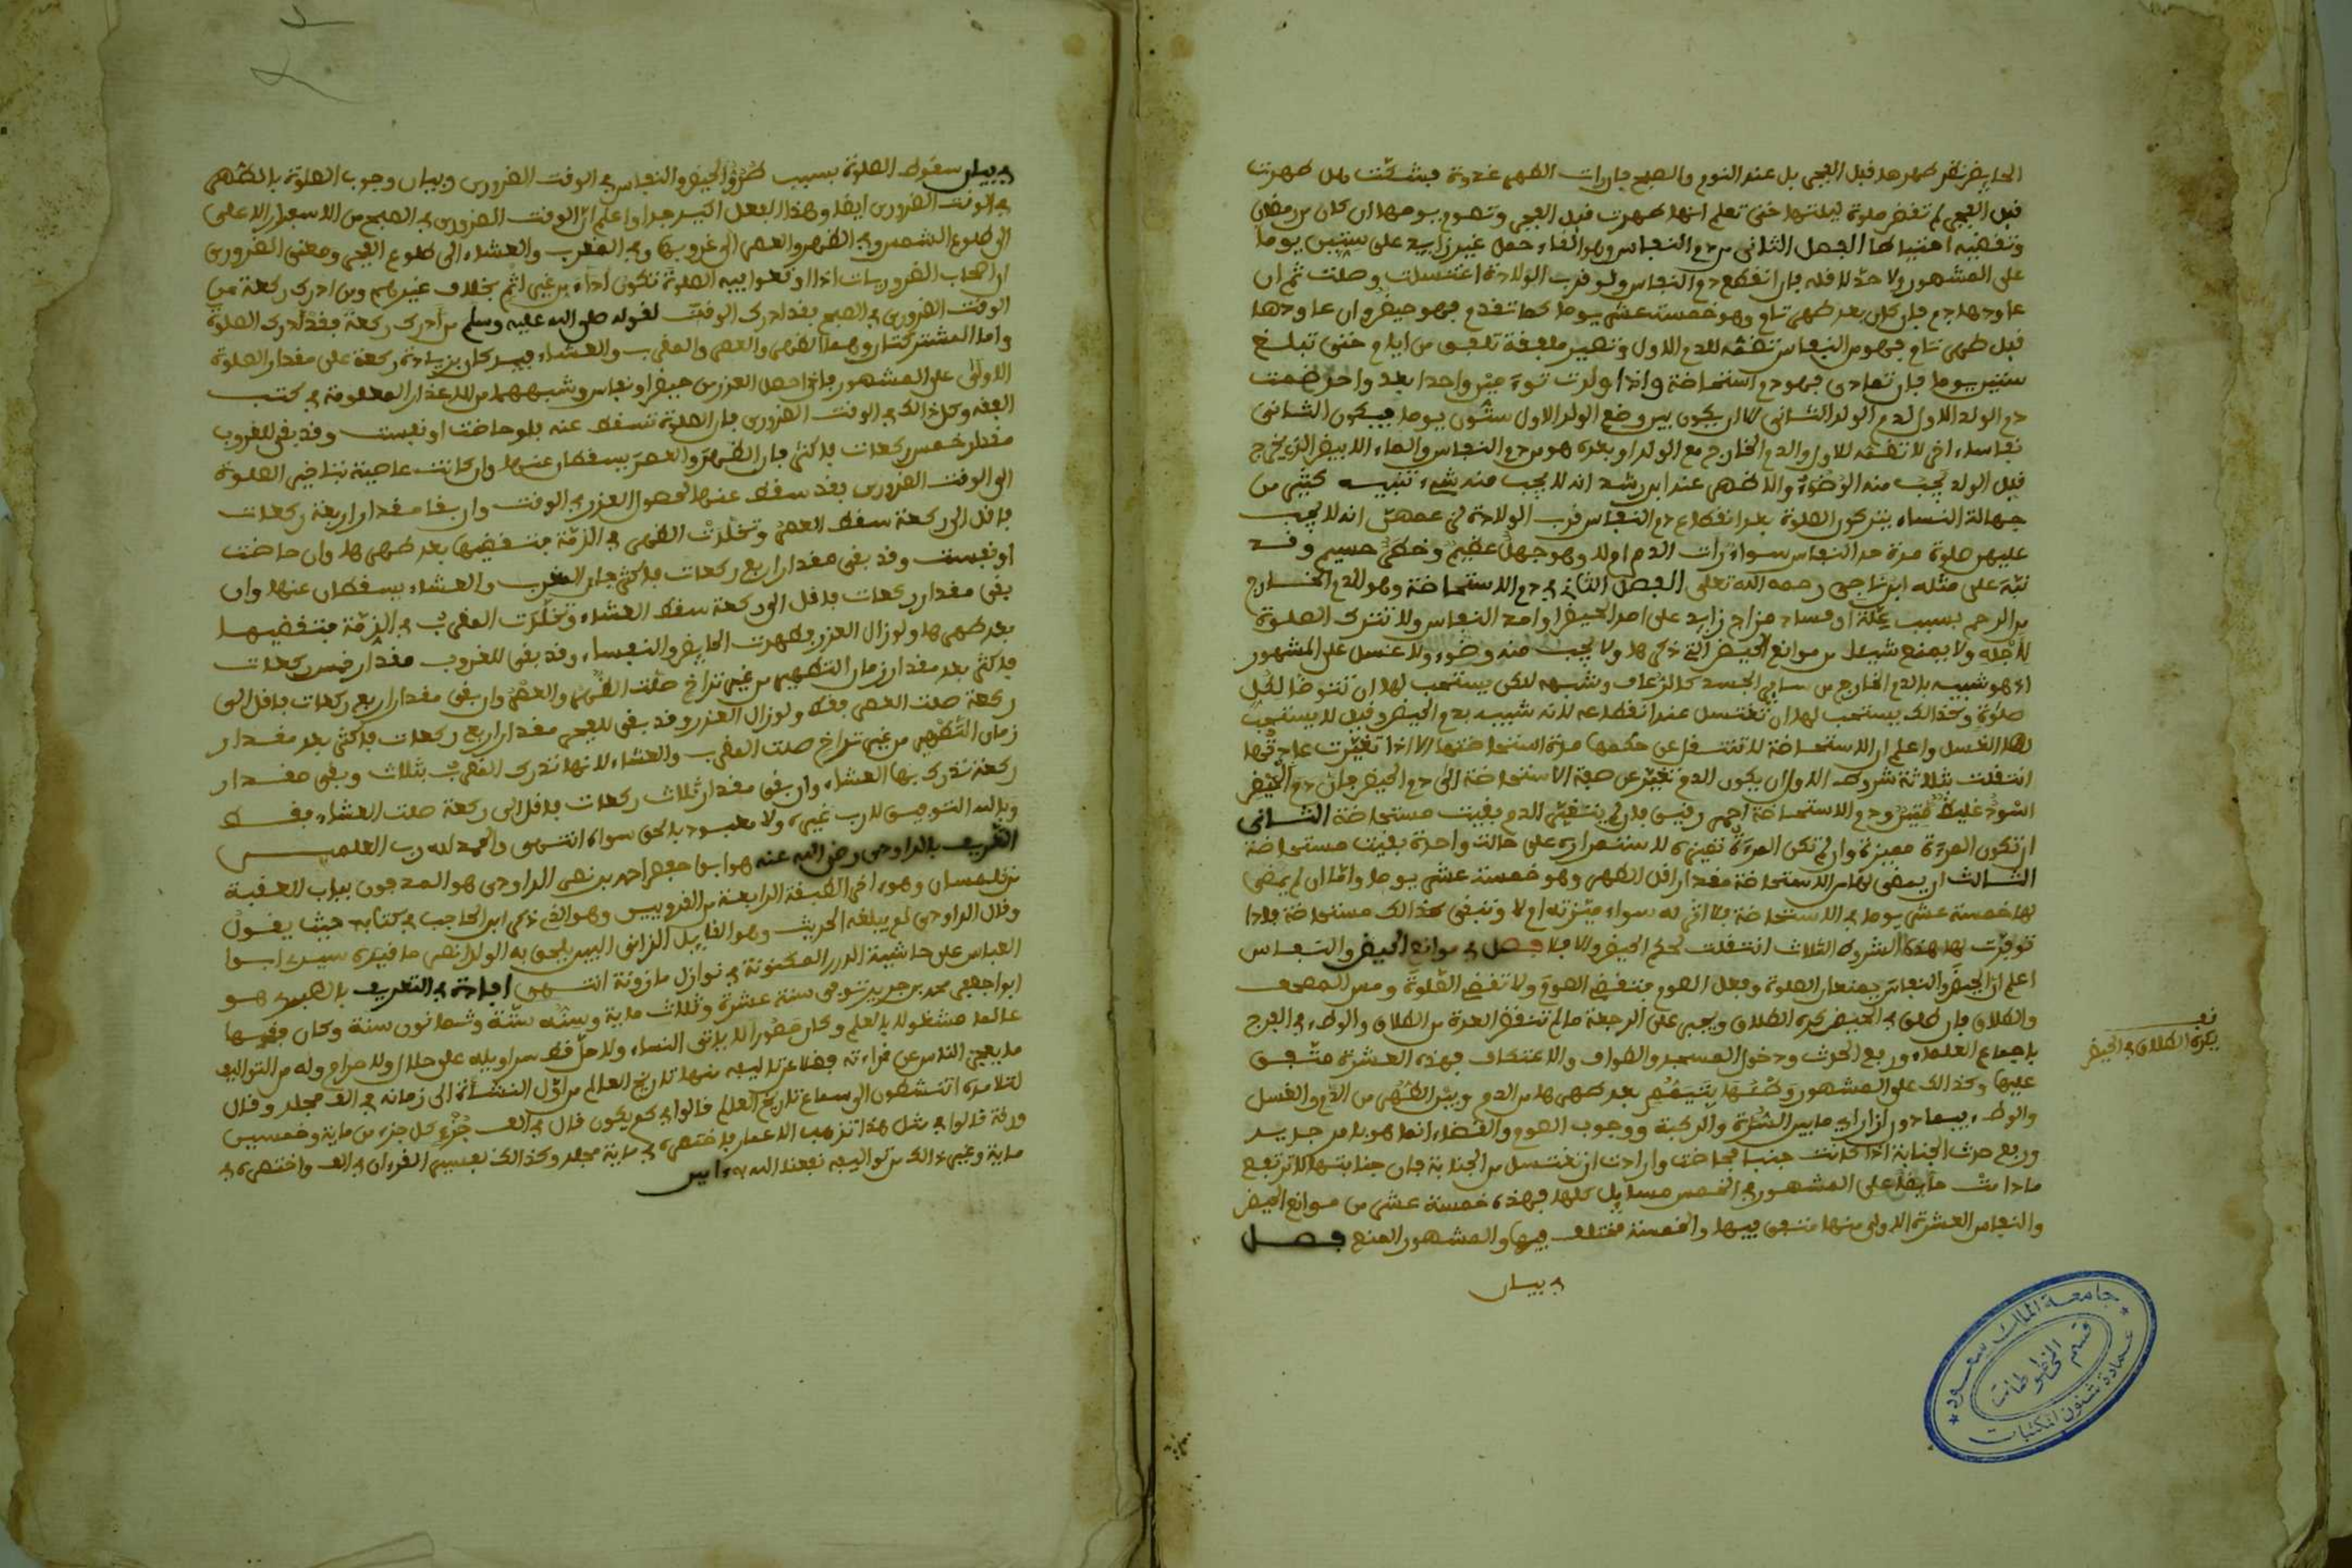 الحايض نظر طهرها قبل الفجر بل عند النوم والصبح فان رات الطهر غدوة فشكت هل طهرت
قبل الفجر لم تقض صلوة ليلتها حتى تعلم انها طهرت قبل الفجر وتصوم يومها ان كان من رمضان
وتقضيه احتياطا الفصل الثانى دم النفاس وهو الغاء حمل غير زايد على ستين يوما
على المشهور ولا حد لاقله فان انقطع دم النفاس ولو قرب الولادة اغتسلت وصلت ثم ان
عاودها دم فان كان بعد طهر تام وهو خمسة عشر يوما كما تقدم فهو حيض وان عاودها
قبل طهر تام فهو من النفاس تضمه للدم الاول وتصير ملفقة تلفق من ايام حتى تبلغ
ستين يوما فان تمادى فهو دم استحاضة واذا ولدت توءمين واحدا بعد واحد ضمت
دم الولد الاول لدم الولد الثانى الا ان يكون بين وضع الولد الاول ستون يوما فيكون الثانى
نفاسا ءاخر لا تضمه للاول والدم الخارج مع الولد او بعده هو من دم النفاس والماء الابيض الذى يخرج
قبل الولد يجب منه الوضوء والاظهر عند ابن رشد انه لا يجب منه شىء تنبيه كثير من
جهالة النساء يتركون الصلوة بعد انقطاع دم النفاس قرب الولادة لزعمهن انه لا يجب
عليهن صلوة مدة حد النفاس سواء رات الدم ام لا وهو جهل عظيم وخطر جسيم وقد
نبه على مثله ابن ناجى رحمه الله تعلى الفصل الثالث فى دم الاستحاضة وهو الدم الخارج
من الرحم بسبب علة او فساد مزاج زايد على امد الحيض او امد النفاس ولا تترك الصلوة
لاجله ولا يمنع شيئا من موانع الحيض التى ذكرها ولا يجب منه وضوء ولا غسل على المشهور
اذ هو شبيه بالدم الخارج من ساير الجسد كالرعاف وشبهه لكن يستحب لها ان تتوضا لكل
صلوة وكذالك يستحب لها ان تغتسل عند انقطاعه لانه شبيه بدم الحيض وقيل لا يستحب
لها الغسل واعلم ان الاستحاضة لا تنتقل عن حكمها مدة استحاضتها الا اذا تغيرت عادتها
انتقلت بثلاثة شروط الاول ان يكون الدم تغير عن صفة الاستحاضة الى دم الحيض فان دم الحيض
اسود غليظ منتن ودم الاستحاضة احمر رقيق فان لم يتغير الدم بقيت مستحاضة الثانى
ان تكون المرءة مميزة وان لم تكن المرءة تميزه لاستمراره على حالة واحدة بقيت مستحاضة
الثالث ان يمضى لها من الاستحاضة مقدار اقل الطهر وهو خمسة عشر يوما واما ان لم يمض
لها خمسة عشر يوما فى الاستحاضة فلا اثر له سواء ميزته ام لا وتبقى كذالك مستحاضة فاذا
توفرت لها هذه الشروط الثلاث انتقلت لحكم الحيض والا فلا فصل فى موانع الحيض والنفاس
اعلم ان الحيض والنفاس يمنعان الصلوة وفعل الصوم فتقضى الصوم ولا تقضى الصلوة ومس المصحف
والطلاق فان طلق فى الحيض كره الطلاق ويجبر على الرجعة ما لم تنقض العدة من الطلاق والوطء فى الفرج
باجماع العلماء ورفع الحدث ودخول المسجد والطواف والاعتكاف فهذه العشرة متفق
عليها وكذالك على المشهور وطئها بتيمم بعد طهرها من الدم وبين الطهر من الدم والغسل
والوطء فيما دون ازار اى ما بين السرة والركبة ووجوب الصوم والقضاء انما هو بامر جديد
ورفع حدث الجنابة اذا كانت جنبا فحاضت وارادت ان تغتسل من الجنابة فان جنابتها لا ترتفع
ما دامت حايضا على المشهور فى الخمس مسايل كلها فهذه خمسة عشر من موانع الحيض
والنفاس العشرة الاولى منها متفق فيها والخمسة مختلف فيها والمشهور المنع فصل
فى بيان
يكره الطلاق فى الحيض
جامعة الملك سعود
قسم المخطوطات
عمادة شئون المكتبات
فى بيان سقوط الصلوة بسبب طرو الحيض والنفاس فى الوقت الضرورى وبيان وجوب الصلوة بالطهر
فى الوقت الضرورى ايضا وهذا الفصل اكيد جدا واعلم ان الوقت الضرورى فى الصبح من الاسفرار الاعلى
الى طلوع الشمس وفى الظهر والعصر الى غروبها وفى المغرب والعشاء الى طلوع الفجر ومعنى الضرورى
ان اصحاب الضروريات اذا اوقعوا فيه الصلوة تكون اداء من غير اثم بخلاف غيرهم ومن ادرك ركعة من
الوقت الضرورى فى الصبح فقد ادرك الوقت لقوله صلى الله عليه وسلم من ادرك ركعة فقد ادرك الصلوة
واما المشتركتان وهما الظهر والعصر والمغرب والعشاء فيدركان بزيادة ركعة على مقدار الصلوة
الاولى على المشهور فاذا حصل العذر من حيض او نفاس وشبههما من الاعذار المعلومة فى كتب
الفقه وكل ذالك فى الوقت الضرورى فان الصلوة تسقط عنه فلو حاضت او نفست وقد بقى للغروب
مقدار خمس ركعات فاكثر فان الظهر والعصر يسقطان عنها وان كانت عاصية بتاخير الصلوة
الى الوقت الضرورى فقد سقط عنها لحصول العذر فى الوقت وان بقا مقدار اربعة ركعات
فاقل الى ركعة سقط العصر وتخلدت الظهر فى الذمة فتقضيها بعد طهرها وان حاضت
او نفست وقد بقى مقدار اربع ركعات فاكثر فان المغرب والعشاء يسقطان عنها وان
بقى مقدار ركعات فاقل الى ركعة سقط العشاء وتخلدت المغرب فى الذمة فتقضيها
بعد طهرها ولو زال العذر فطهرت الحايض والنفساء وقد بقى للغروب مقدار خمس ركعات
فاكثر بعد مقدار زمان التطهير من غير تراخ صلت الظهر والعصر وان بقى مقدار اربع ركعات فاقل الى
ركعة صلت العصر فقط ولو زال العذر وقد بقى للفجر مقدار اربع ركعات فاكثر بعد مقدار
زمان التطهير من غير تراخ صلت المغرب والعشاء لانها تدرك المغرب بثلاث وبقى مقدار
ركعة تدرك بها العشاء وان بقى مقدار ثلاث ركعات فاقل الى ركعة صلت العشاء فقط
وبالله التوفيق لا رب غيره ولا معبود بالحق سواه انتهى والحمد لله رب العلمين
التعريف بالداودى رضى الله عنه هو ابو جعفر احمد بن نصر الداودى هو المدفون بباب العقبة
من تلمسان وهو ءاخر الطبقة الرابعة من القرويين وهو الذى ذكر ابن الحاجب فى كتابه حيث يقول
وقال الداودى لم يبلغه الحديث وهو القايل الزانى البين يلحق به الولد انتهى ما قيده سيدى ابو
العباس على حاشية الدرر المكنونة فى نوازل مازونة انتهى افادة فى التعريف بالطبرى هو
ابو جعفر محمد بن جرير توفى سنة عشرة وثلاث ماية وسنه ستة وثمانون سنة وكان فقيها
عالما مشغولا بالعلم وكان حصورا لا ياتى النساء ولا حل قط سراويله على حلال ولا حرام وله من التواليف
ما يعجز الناس عن قراءته فضلا عن تاليفه منها تاريخ العالم من اول النشاة الى زمانه فى الف مجلد وقال
لتلامذه اتنشطون الى سماع تاريخ العالم قالوا فى كم يكون قال فى الف جزء كل جزء من ماية وخمسين
ورقة قالوا فى مثل هذا تذهب الاعمار فاختصره فى ماية مجلد وكذالك تفسير القرءان فى الف واختصره فى
ماية وغير ذالك من تواليفه نفعنا الله به ءامين